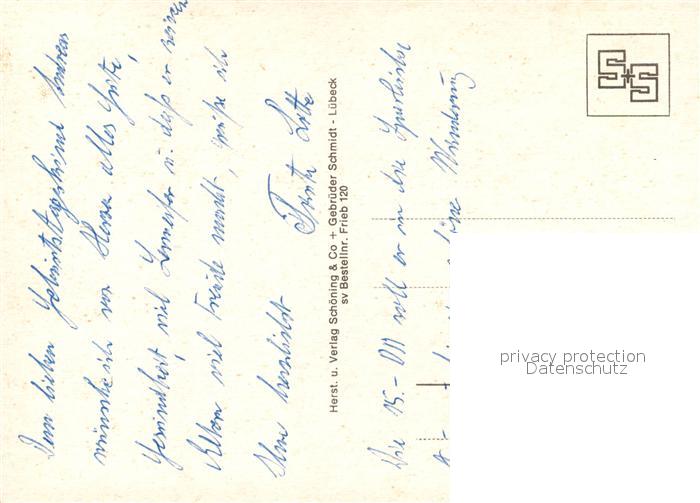 Dem lieben Geburtstagskind Andreas
wünsche ich von Herzen alles Gute,
Gesundheit, viel Lerneifer u. daß er seinen
Eltern viel Freude macht, grüße ich
Ihn herzlichst
Tante Lotte
Herst. u. Verlag Schöning & Co + Gebrüder Schmidt - Lübeck
sv Bestellnr. Frieb 120
Die 15.- DM soll er in die
privacy protection
Datenschutz